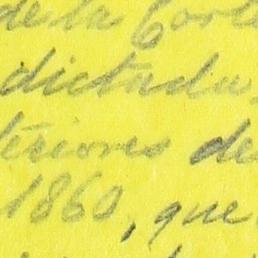 de la Corte
dictada
teriores de
1860, que